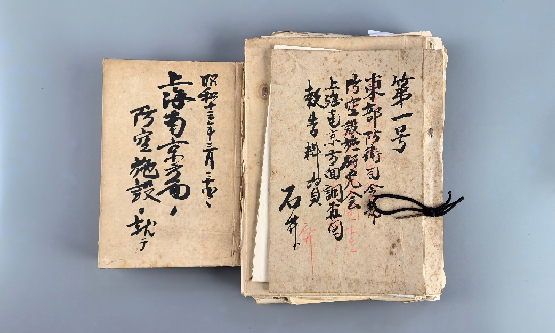 第一号
東部防衛司令部
防空設施研究会
上海南京方面調査団
報告
石井
昭和十三年二月
上海南京方面ノ
防空施設ニ就テ